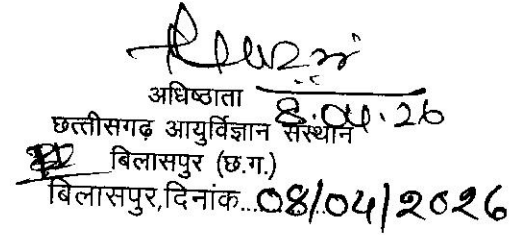 अधिष्ठाता
8.04.26
छत्तीसगढ़ आयुर्विज्ञान संस्थान
बिलासपुर (छ.ग.)
बिलासपुर,दिनांक...08/04/2026